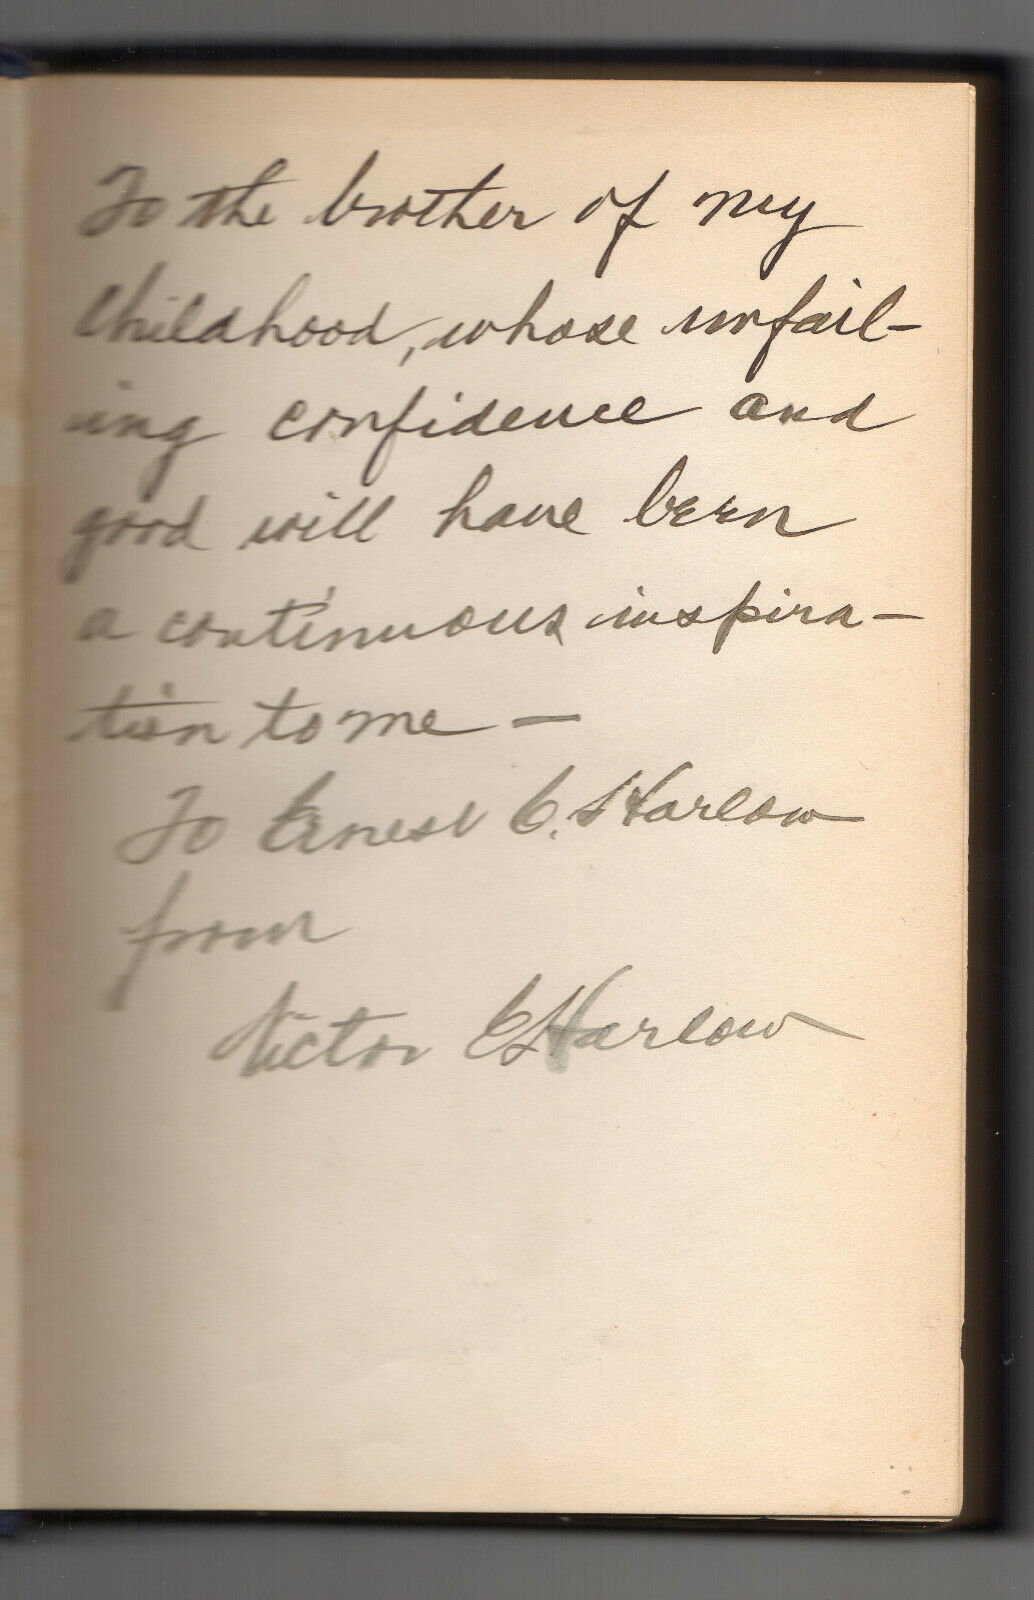 To the brother of my
childhood, whose unfail-
ing confidence and
good will have been
a continuous inspira-
tion to me —
To Ernest C. Harlow
from
Victor E Harlow